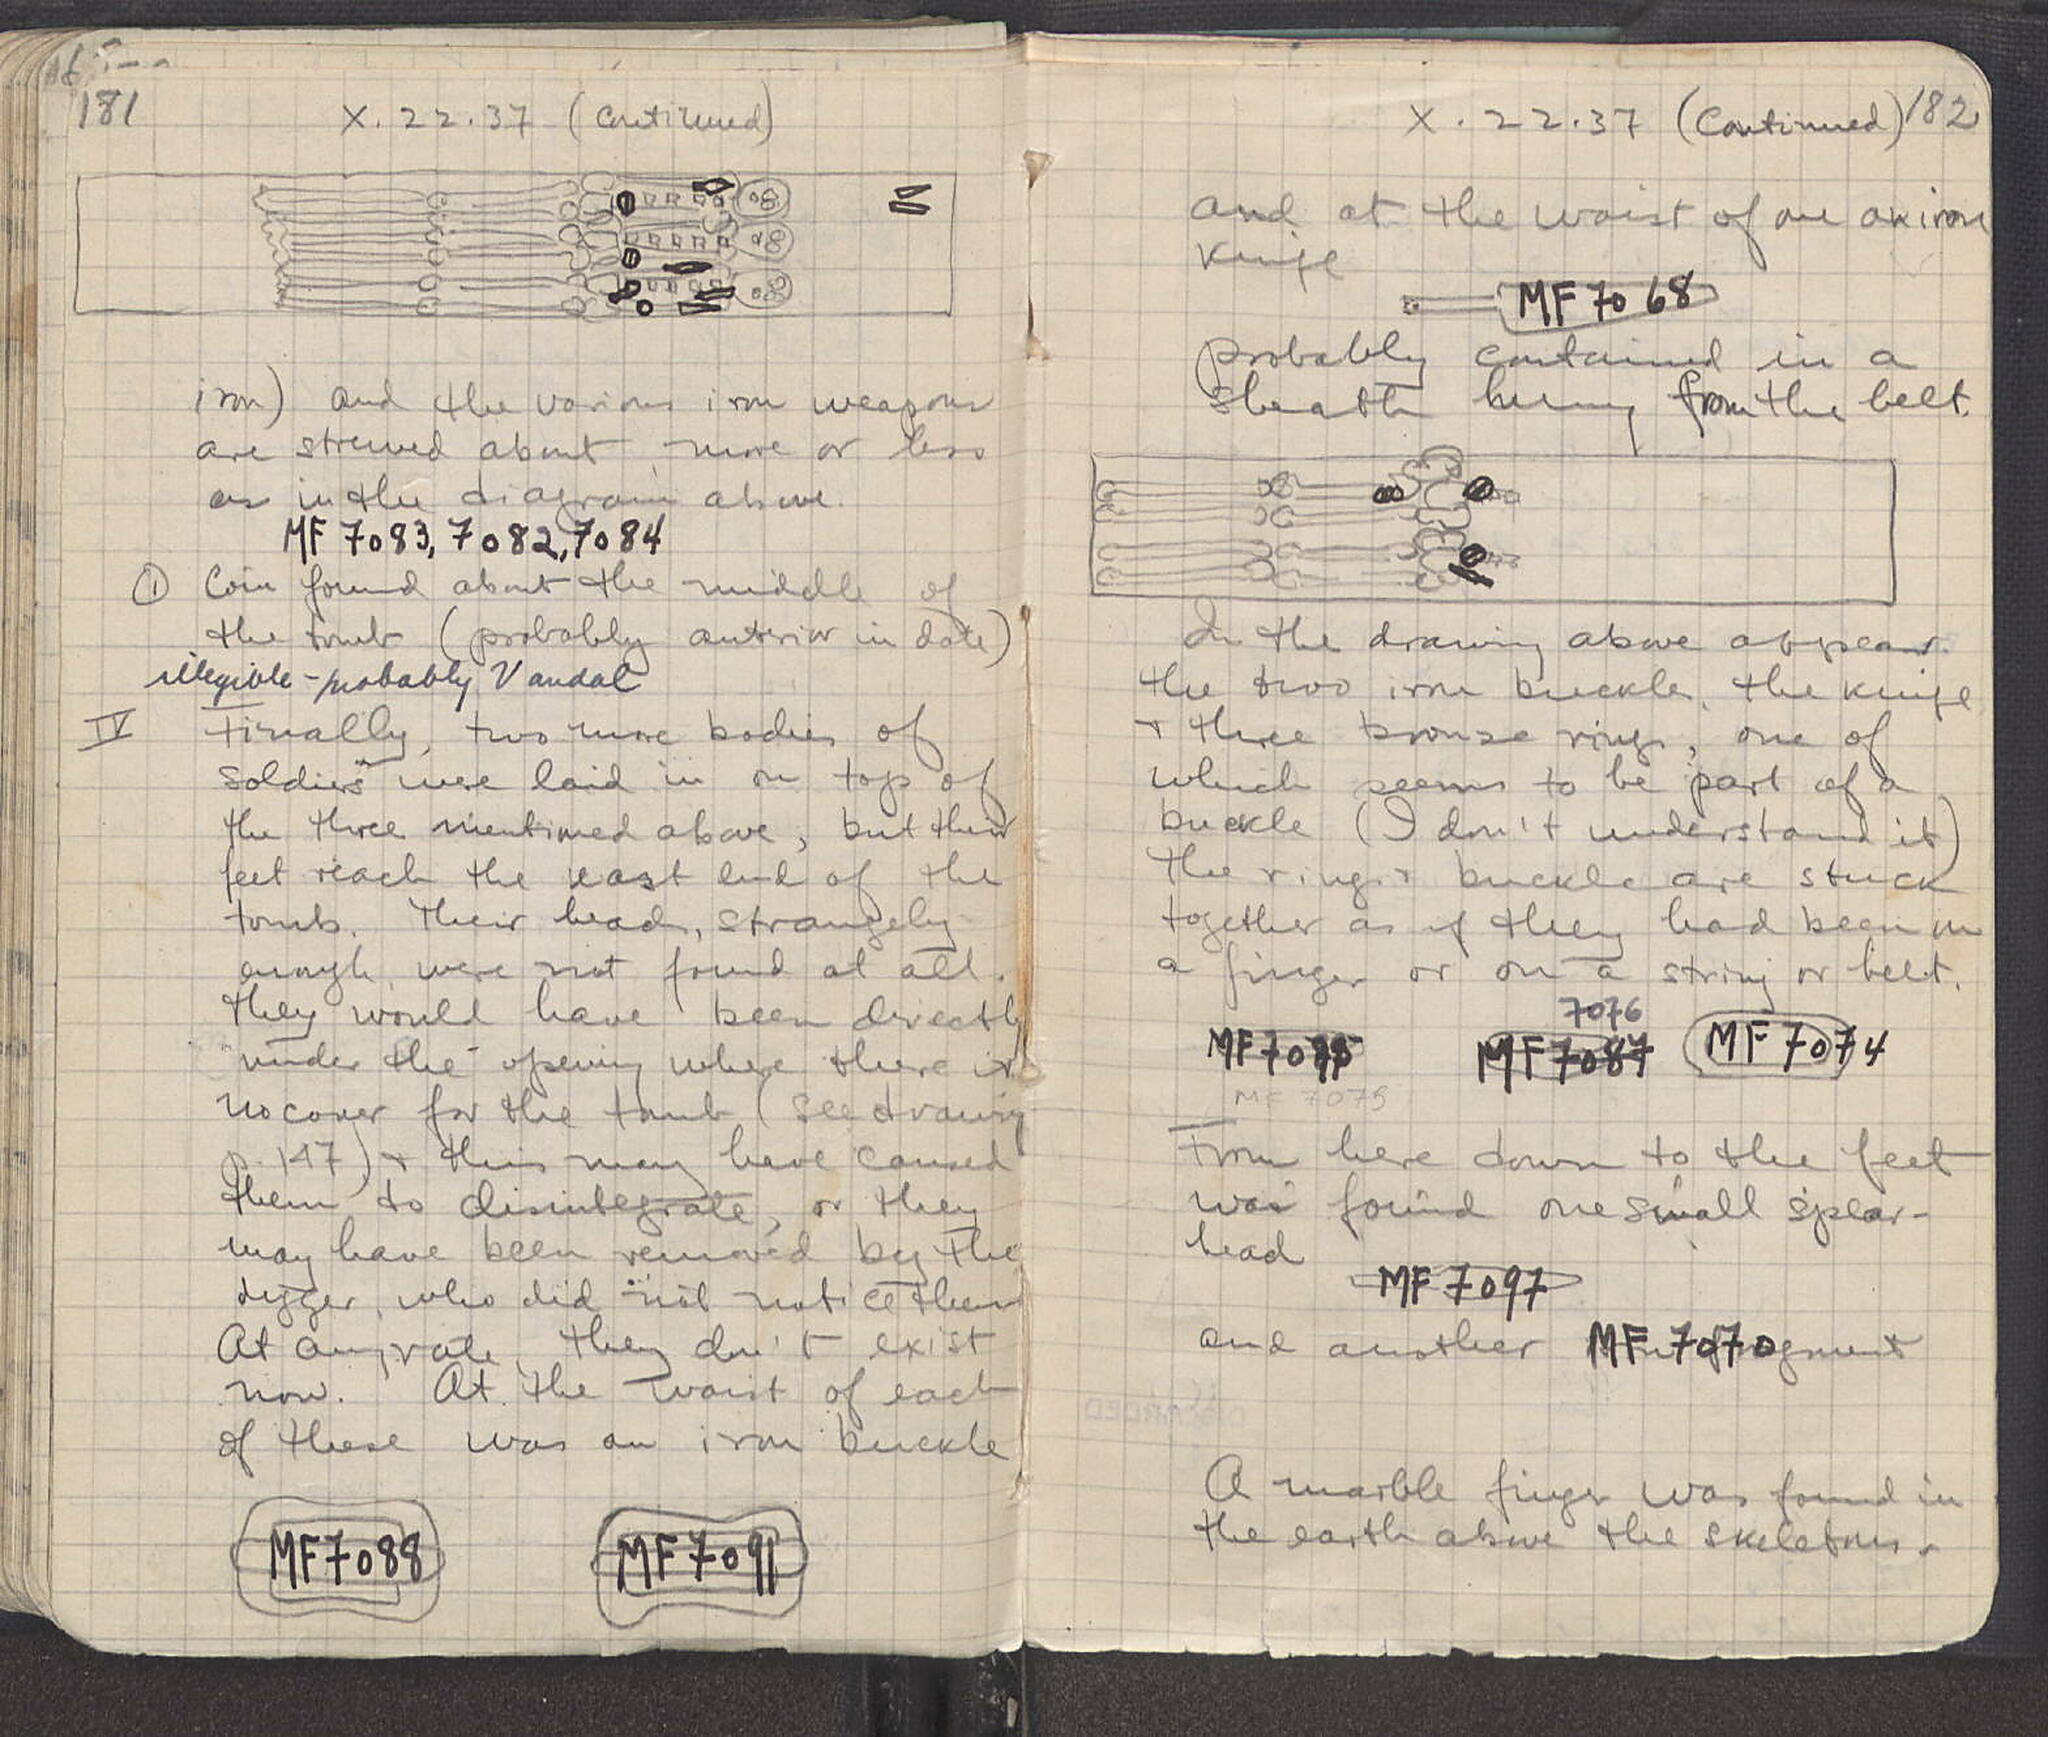 181
X.22.37 (Continued)
iron) and the various iron weapons
are strewed about, more or less
as in the diagram above.
MF 7083, 7082, 7084
① Coin found about the middle of
the tomb (probably anterior in date)
illegible - probably Vandal
IV Finally, two more bodies of
soldiers were laid in on top of
the three mentioned above, but their
feet reach the east end of the
tomb. Their heads, strangely
enough, were not found at all.
They would have been directly
under the opening where there is
no cover for the tomb (see drawing
p. 147) + this may have caused
them to disintegrate, or they
may have been removed by the
digger, who did not notice them
At any rate, they don't exist
now. At the waist of each
of these was an iron buckle
MF7088 MF7091
X.22.37 (Continued) 182
and at the waist of one an iron
knife
MF 7068
probably contained in a
sheath hung from the belt.
In the drawing above appear
the two iron buckles, the knife
+ three bronze rings, one of
which seems to be part of a
buckle (I don't understand it)
The rings + buckle are stuck
together as if they had been on
a finger or on a string or belt.
7076
MF 7087 MF 7074
MF 7075
From here down to the feet
was found one small spear-
head
MF 7097
and another MF 7070 fragment
A marble finger was found in
the earth above the skeletons.